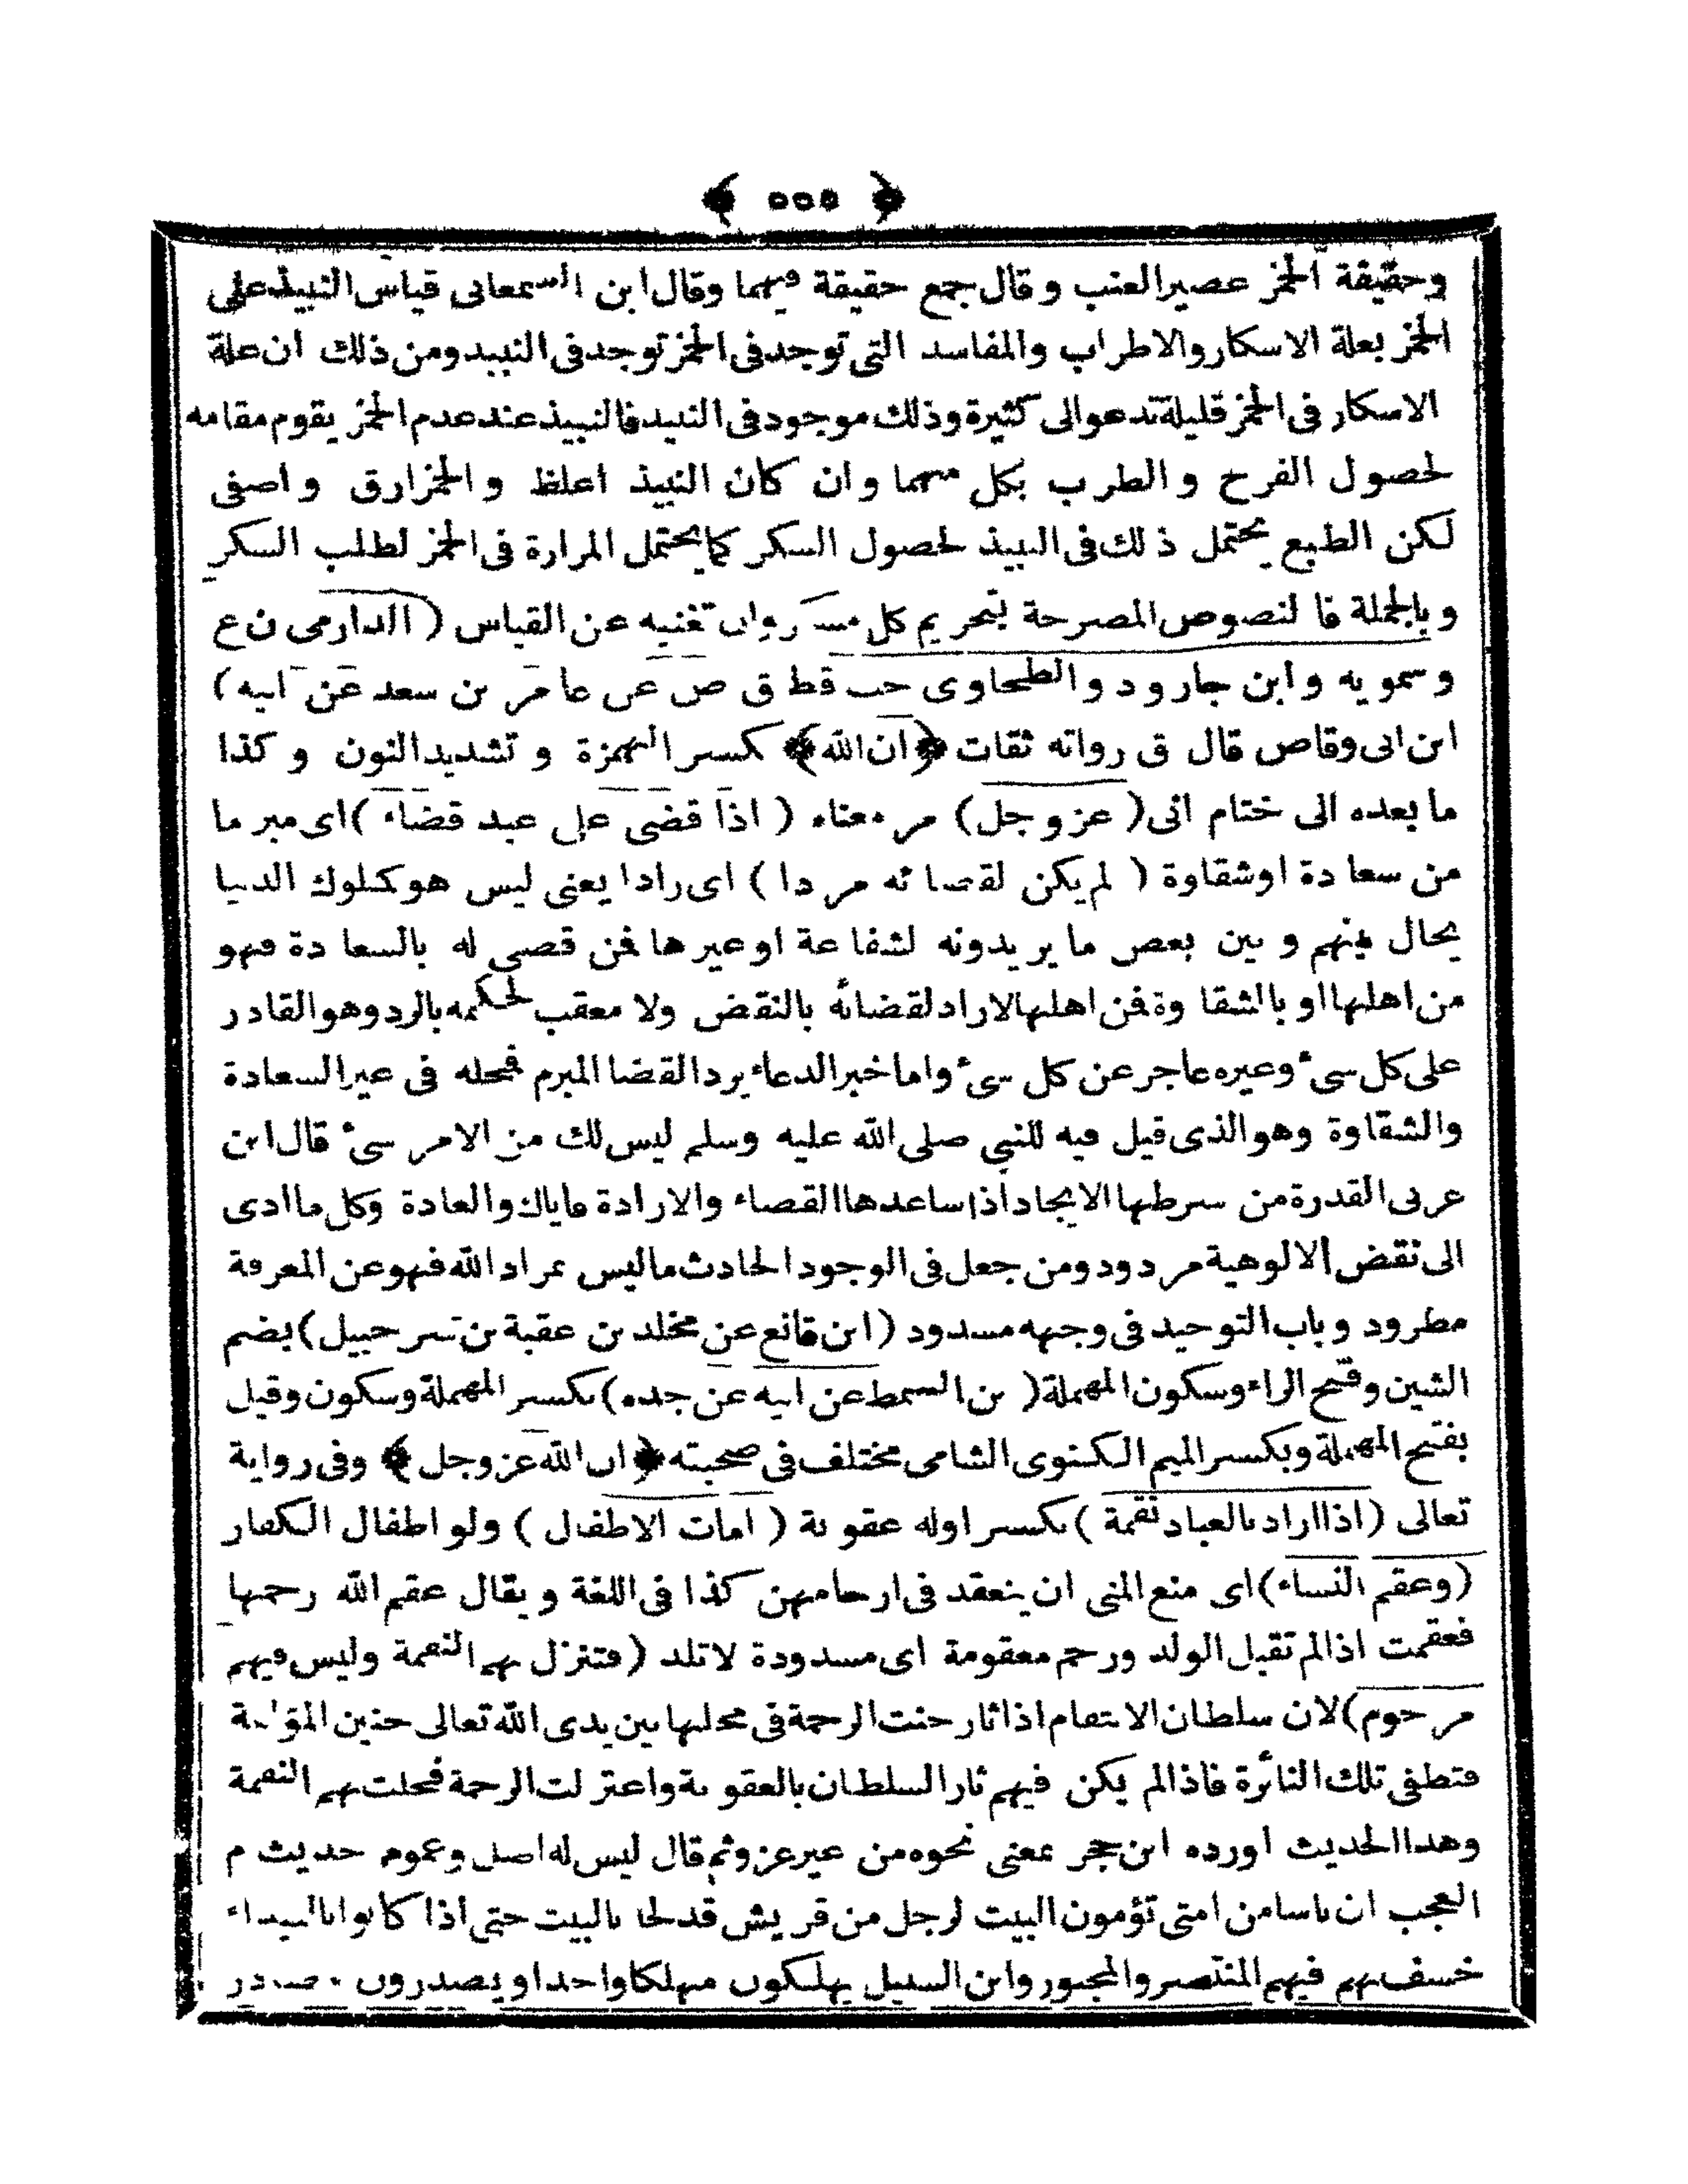 ﴿ ٥٥٥ ﴾
وحقيقة الخمر عصير العنب وقال جمع حقيقة فيهما وقال ابن السمعانى قياس النبيذ على
الخمر بعلة الاسكار والاطراب والمفاسد التى توجد فى الخمر توجد فى النبيد ومن ذلك ان علة
الاسكار فى الخمر قليلة تدعو الى كثيرة وذلك موجود فى النبيد فالنبيذ عند عدم الخمر يقوم مقامه
لحصول الفرح والطرب بكل منهما وان كان النبيذ اغلظ والخمر ارق واصفى
لكن الطبع يحتمل ذلك فى النبيذ لحصول السكر كما يحتمل المرارة فى الخمر لطلب السكر
وبالجملة فالنصوص المصرحة بتحريم كل مسكر وان تغنيه عن القياس (الدارمى ن ع
وسمويه وابن جارود والطحاوى حب قط ق ض عن عامر بن سعد عن ابيه)
ابن ابى وقاص قال ق رواته ثقات ﴿ان الله﴾ بكسر الهمزة وتشديد النون وكذا
ما بعده الى ختام انى (عز وجل) مر معناه (اذا قضى على عبد قضاء) اى مبرما
من سعادة اوشقاوة (لم يكن لقضائه مردا) اى رادا يعنى ليس هو كملوك الدنيا
يحال بينهم وبين بعض ما يريدونه لشفاعة اوغيرها فمن قضى له بالسعادة فهو
من اهلها او بالشقاوة فمن اهلها لاراد لقضائه بالنقض ولا معقب لحكمه بالرد وهو القادر
على كل شىء وغيره عاجز عن كل شىء واما خبر الدعاء يرد القضا المبرم فمحله فى غير السعادة
والشقاوة وهو الذى قيل فيه للنبي صلى الله عليه وسلم ليس لك من الامر شىء قال ابن
عربى القدرة من شرطها الايجاد اذا ساعدها القضاء والارادة فاياك والعادة وكل ما ادى
الى نقض الالوهية مردود ومن جعل فى الوجود الحادث ما ليس بمراد الله فهو عن المعرفة
مطرود وباب التوحيد فى وجهه مسدود (ابن قانع عن مخلد بن عقبة بن شرحبيل) بضم
الشين وفتح الراء وسكون المهملة (بن السمط عن ابيه عن جده) بكسر المهملة وسكون وقيل
بفتح المهملة وبكسر الميم الكنوى الشامى مختلف فى صحبته ﴿ان الله عز وجل﴾ وفى رواية
تعالى (اذا اراد بالعباد نقمة) بكسر اوله عقوبة (امات الاطفال) ولو اطفال الكفار
(وعقم النساء) اى منع المنى ان ينعقد فى ارحامهن كذا فى اللغة ويقال عقم الله رحمها
فعقمت اذا لم تقبل الولد ورحم معقومة اى مسدودة لا تلد (فتنزل بهم النقمة وليس فيهم
مرحوم) لان سلطان الانتقام اذا ثار حنت الرحمة فى محلها بين يدى الله تعالى حنين
فتطفى تلك النائرة فاذا لم يكن فيهم ثار السلطان بالعقوبة واعتزلت الرحمة فحلت بهم النقمة
وهذا الحديث اورده ابن حجر بمعنى نحوه من غير عزو ثم قال ليس له اصل وعموم حديث م
العجب ان ناسا من امتى يؤمون البيت لرجل من قريش قد لجا بالبيت حتى اذا كانوا بالبيداء
خسف بهم فيهم المنتصر والمجبور وابن السبيل يهلكون مهلكا واحدا ويصدرون